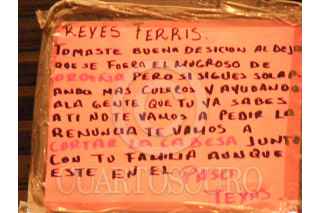 REYES FERRIS.
TOMASTE BUENA DESICION AL DEJA
QUE SE FUERA EL MUGROSO DE
ORDUÑA PERO SI SIGUES SOLAP
ANDO MAS CULEROS Y AYUDANDO
ALA GENTE QUE TU YA SABES
ATI NO TE VAMOS A PEDIR LA
RENUNCIA TE VAMOS A
CORTAR LA CABESA JUNTO
CON TU FAMILIA AUNQUE
ESTE EN EL PASO
TEXAS.
CUARTOSCURO